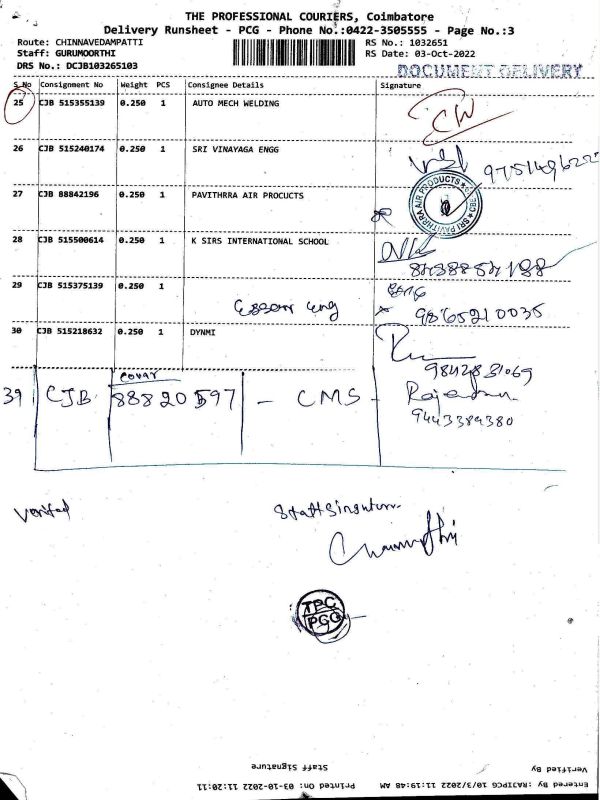 THE PROFESSIONAL COURIERS, Coimbatore
Delivery Runsheet - PCG - Phone No.:0422-3505555 - Page No.:3
Route: CHINNAVEDAMPATTI RS No.: 1032651
Staff: GURUMOORTHI RS Date: 03-Oct-2022
DRS No.: DCJB103265103 DOCUMENT DELIVERY
S.No Consignment No Weight PCS Consignee Details Signature
25 CJB 515355139 0.250 1 AUTO MECH WELDING
26 CJB 515240174 0.250 1 SRI VINAYAGA ENGG
27 CJB 88842196 0.250 1 PAVITHRRA AIR PROCUCTS
SRI PAVITHRRA AIR PRODUCTS CBE
28 CJB 515500614 0.250 1 K SIRS INTERNATIONAL SCHOOL
29 CJB 515375139 0.250 1
Essorr Eng 9865210035
30 CJB 515218632 0.250 1 DYNMI
covar
39 CJB 88820597 - CMS -
9443384380
Verified
TPC
PCG
Staff Signature
Verified By
Printed On: 03-10-2022 11:20:11
Entered By :RAJIPCG 10/3/2022 11:19:48 AM